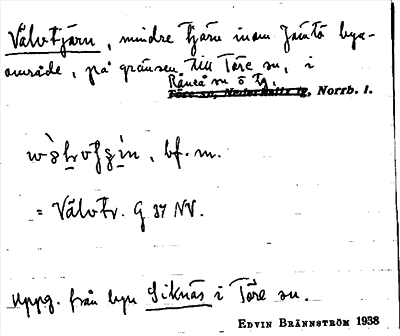 Välvtjärn, mindre tjärn inom Jämtö bya-
område, på gränsen till Töre sn, i
Råneå sn ö tg.
Töre sn, Nederkalix tg, Norrb. l.
bf. m.
= Välvtr. G 37 NV.
Uppg. från byn Siknäs i Töre sn.
EDVIN BRÄNNSTRÖM 1938